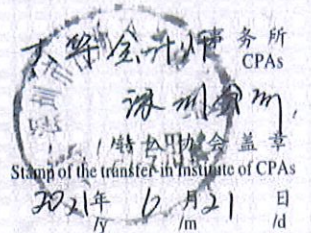 大华会计师事务所
CPAs
深圳分所
转会协会盖章
Stamp of the transfer-in Institute of CPAs
2021年 6月21日
/y /m /d